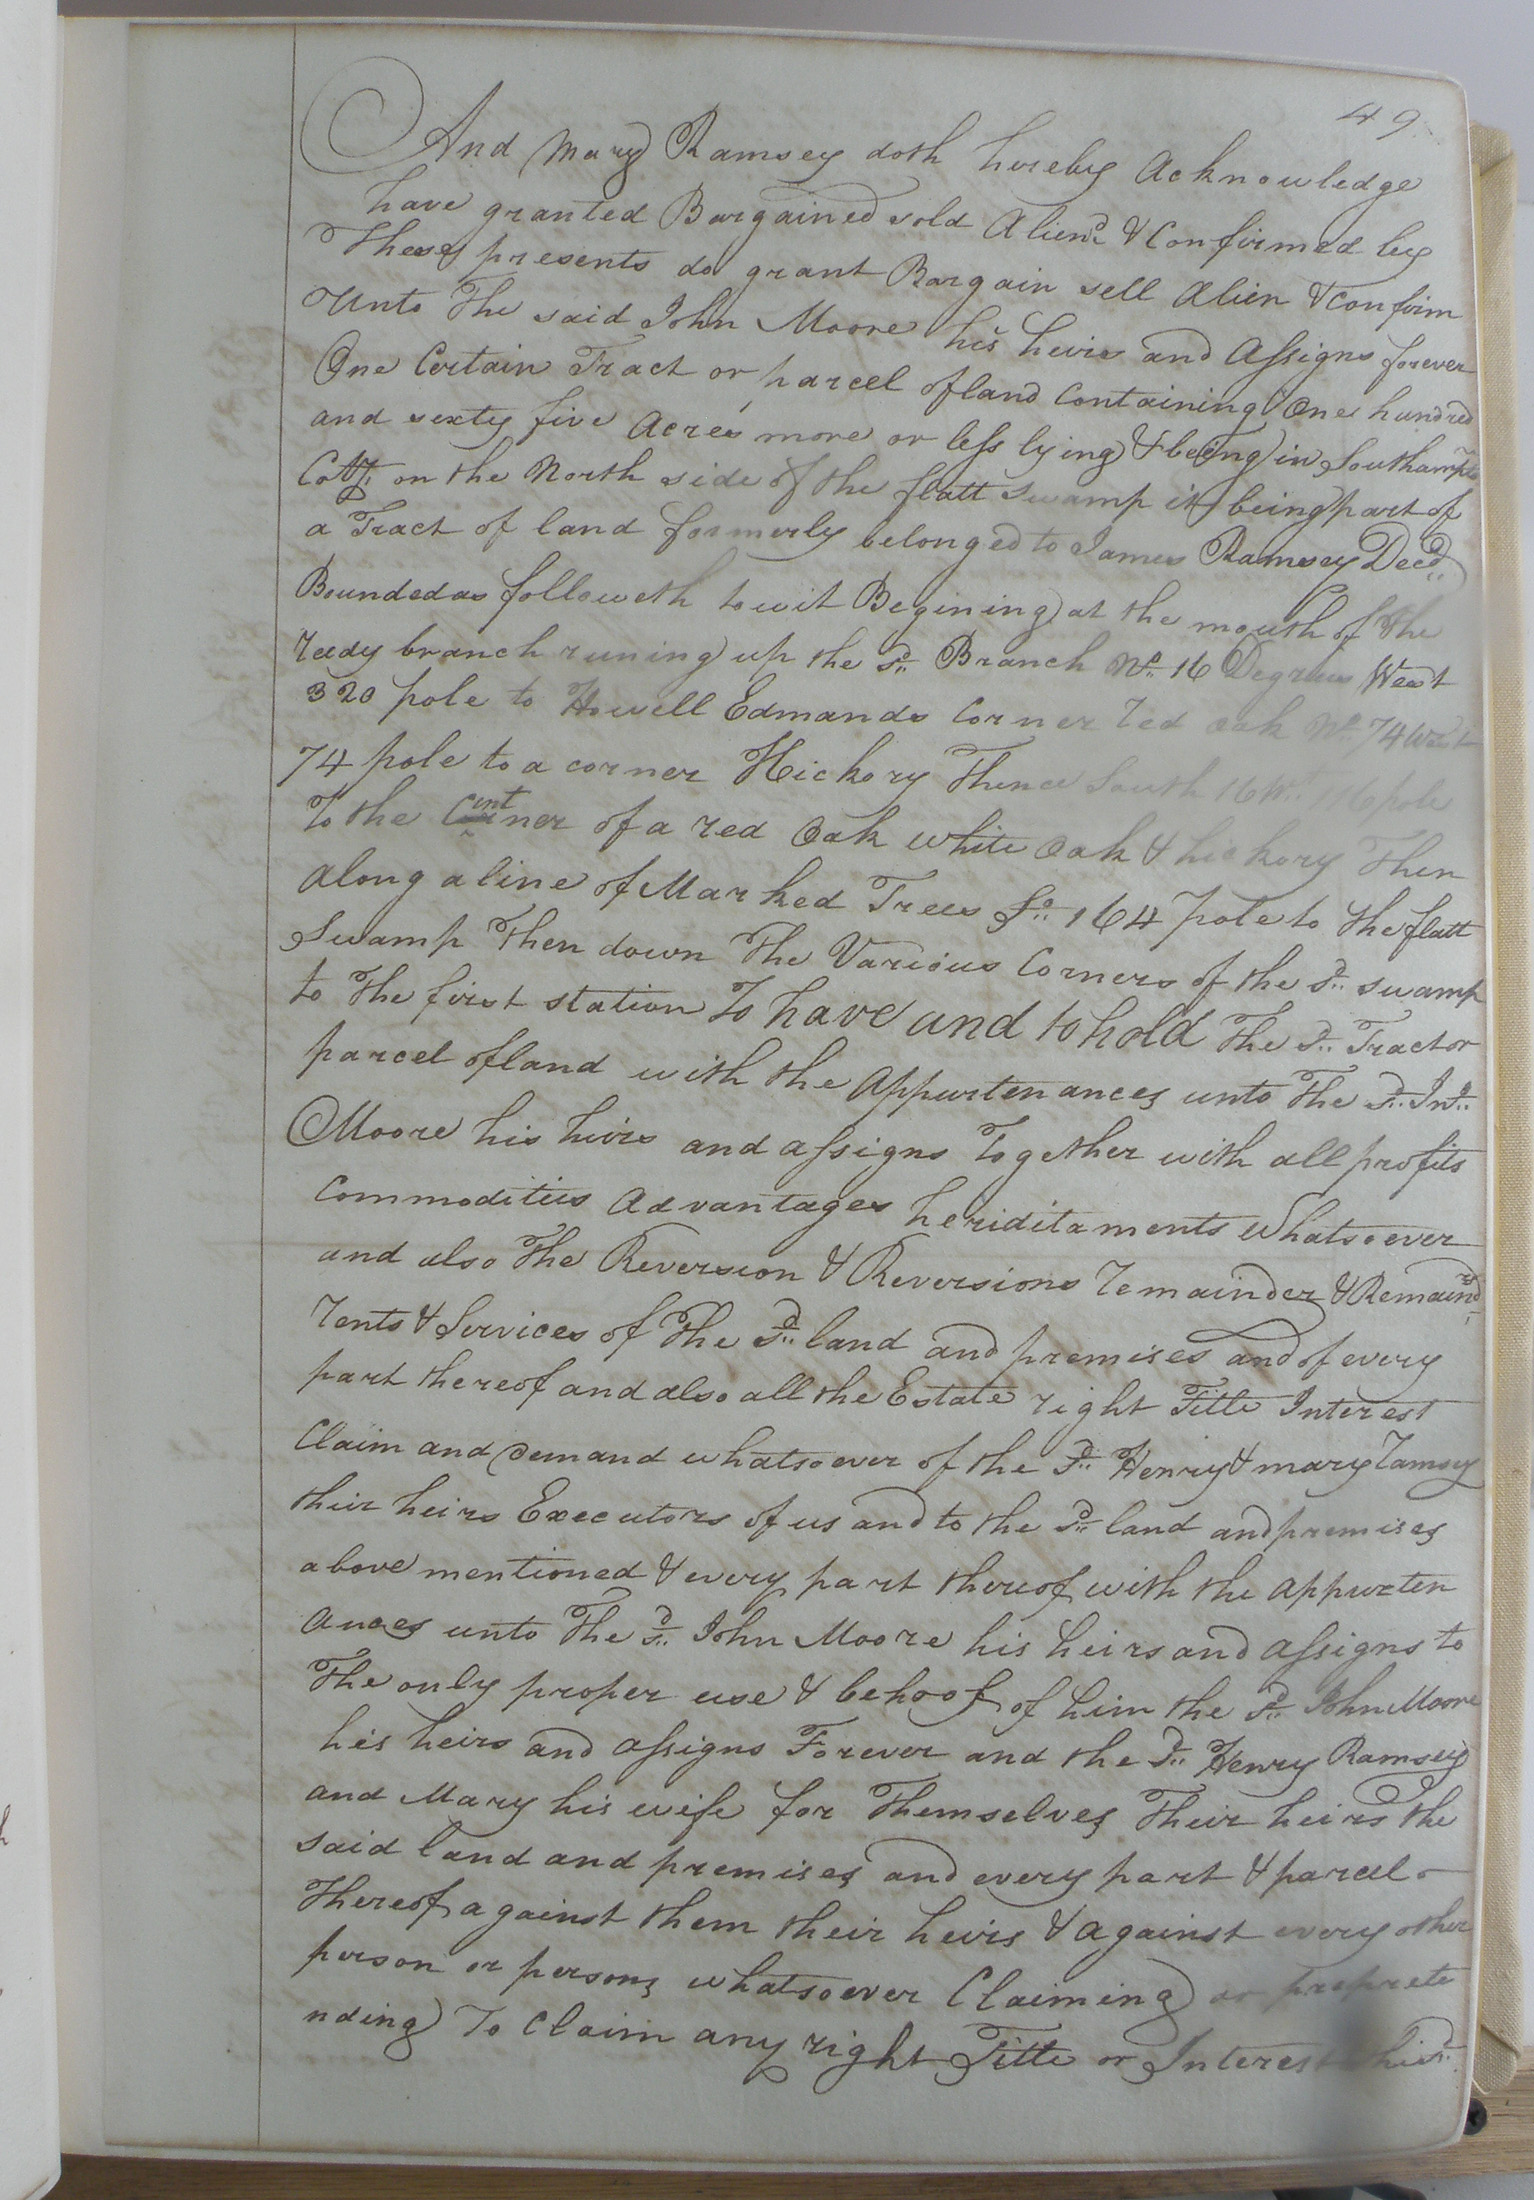 49
And Mary Ramsey doth hereby Acknowledge
have granted Bargained sold Aliend & Confirmed by
These presents do grant Bargain sell Alien & Confirm
Unto The said John Moore his heirs and Assigns forever
One Certain Tract or parcel of land Containing One hundred
and sexty five Acres more or less lying & being in Southampto
Coty. on the North side of the flatt swamp it being part of
a Tract of land formerly belonged to James Ramsey Decd
Bounded as followeth to wit Begining at the mouth of the
reedy branch runing up the sd. Branch No. 16 Degrees West
320 pole to Howell Edmands Corner red oak No. 74 West
74 pole to a corner Hickory Thence South 16 W. pole
To the Cent ner of a red Oak white Oak & hickory Then
along a line of Marked Trees So. 164 pole to the flatt
Swamp Then down The Various Corners of the sd. swamp
to The first station To have and to hold The sd. Tract or
parcel of land with the Appurtenances unto The sd. Jno.
Moore his heirs and assigns Together with all profits
Commodities Advantages heriditaments Whatsoever
and also The Reversion & Reversions remainder & Remaindr
rents & Services of The sd. land and premises and of every
part thereof and also all the Estate right Title Interest
Claim and Demand whatsoever of the sd. Henry & mary ramsey
their heirs Executors of us and to the sd. land and premises
above mentioned & every part thereof with the Appurten
ances unto The sd. John Moore his heirs and assigns to
The only proper use & behoof of him the sd. John Moore
his heirs and assigns Forever and the sd. Henry Ramsey
and Mary his wife for Themselves Their heirs the
said land and premises and every part & parcel
Thereof against them their heirs & against every other
person or persons whatsoever Claiming or preprete
nding To Claim any right Title or Interest